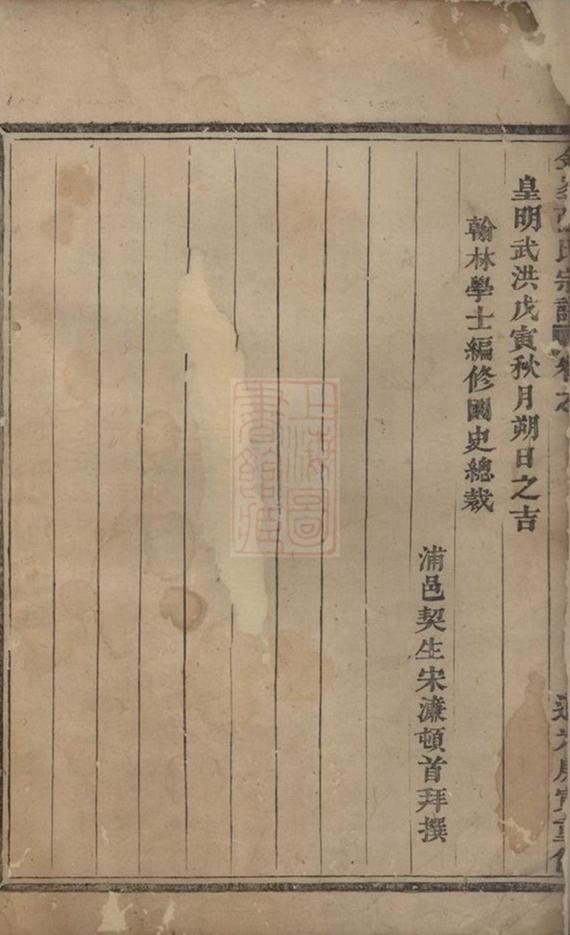 氏宗譜卷之
皇明武洪戊寅秋月朔日之吉
翰林學士編修國史總裁
浦邑契生宋濂頓首拜撰
上海圖書館藏